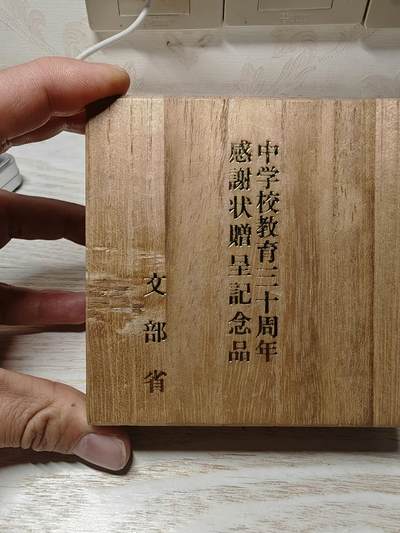 中学校教育三十周年
感謝状贈呈記念品
文部省